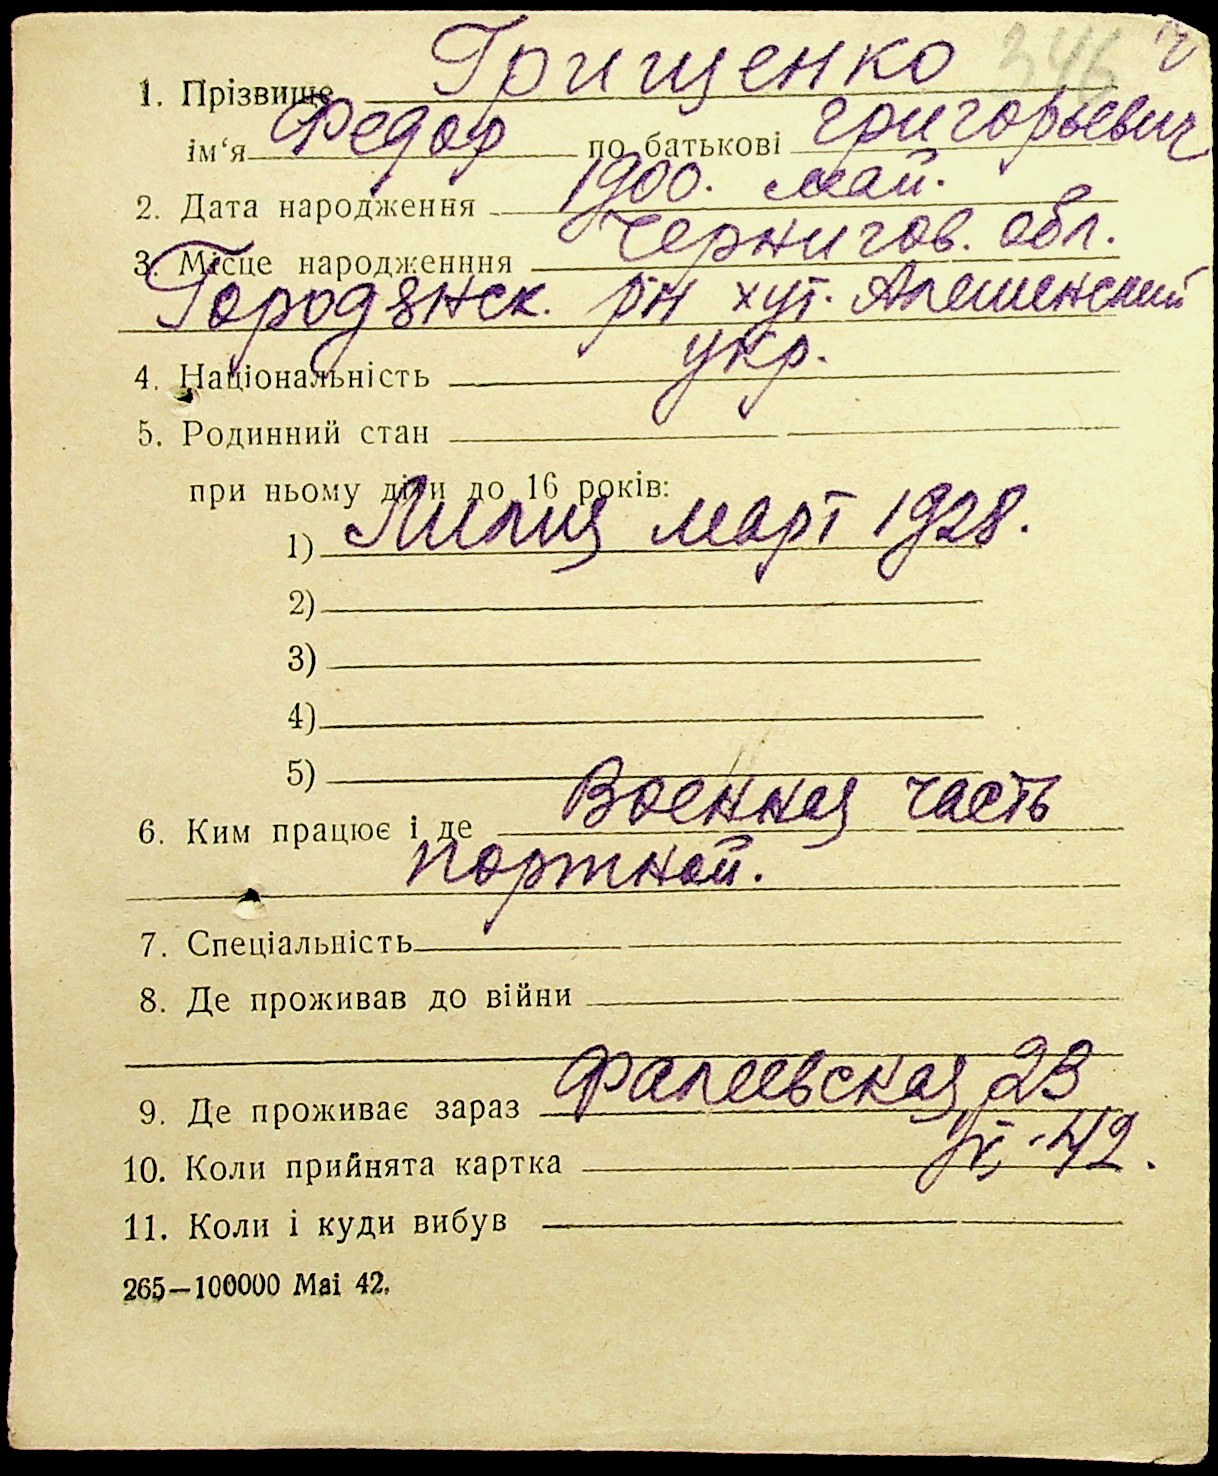 346
1. Прізвище Грищенко
ім‘я Федор по батькові Григорьевич
2. Дата народження 1900. май.
3. Місце народженння Чернигов. обл.
Городянск. р-н хут. Алешенский
4. Національність укр.
5. Родинний стан
при ньому діти до 16 років:
1) Лилия март 1928.
2)
3)
4)
5)
6. Ким працює і де Военная часть
портной.
7. Спеціальність
8. Де проживав до війни
9. Де проживає зараз Фалеевская 23
10. Коли прийнята картка 42.
11. Коли і куди вибув
265—100000 Mai 42.